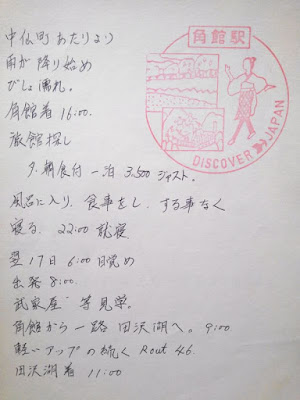 中仙町 あたりより
雨が降り始め
びしょ濡れ。
角館着 16:00.
旅館探し
夕.朝食付 一泊 3.500 ジャスト.
風呂に入り. 食事をし. する事なく
寝る. 22:00 就寝
翌17日 6:00 目覚め
出発 8:00.
武家屋 等見学。
角館から一路 田沢湖へ。 9:00
軽いアップの続く Rout 46.
田沢湖着 11:00
角館駅
DISCOVER JAPAN